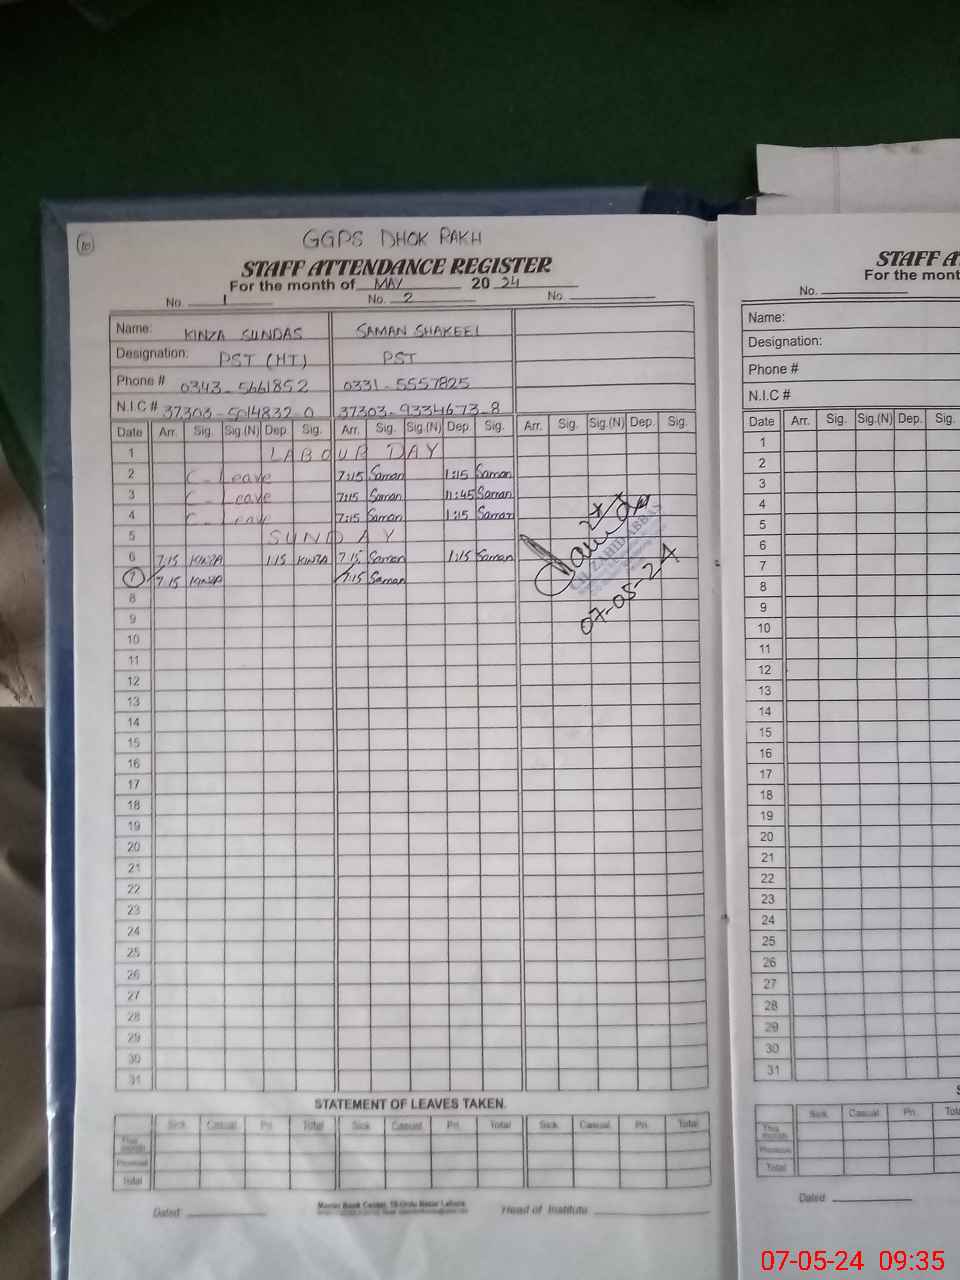 10
GGPS DHOK PAKH
STAFF ATTENDANCE REGISTER
For the month of MAY 20 24
No. 1 No. 2 No.
Name: KINZA SUNDAS SAMAN SHAKEEL
Designation: PST (HT) PST
Phone # 0343-5661852 0331-5557825
N.I.C # 37303-5014832-0 37303-9334673-8
Date Arr. Sig. Sig.(N) Dep. Sig. Arr. Sig. Sig.(N) Dep. Sig. Arr. Sig. Sig.(N) Dep. Sig.
1 LABOUR DAY
2 C-Leave 7:15 Saman 1:15 Saman
3 C-Leave 7:15 Saman 11:45 Saman
4 C-Leave 7:15 Saman 1:15 Saman
5 SUNDAY
6 7:15 KINZA 1:15 KINZA 7:15 Saman 1:15 Saman
7 7:15 KINZA 7:15 Saman
CH ZAHID ABBAS
07-05-24
8
9
10
11
12
13
14
15
16
17
18
19
20
21
22
23
24
25
26
27
28
29
30
31
STATEMENT OF LEAVES TAKEN.
Sick Casual Pri. Total Sick Casual Pri. Total Sick Casual Pri. Total
This month
Previous
Total
Dated Head of Institute
STAFF AT
For the mont
No.
Name:
Designation:
Phone #
N.I.C #
Date Arr. Sig. Sig.(N) Dep. Sig.
1
2
3
4
5
6
7
8
9
10
11
12
13
14
15
16
17
18
19
20
21
22
23
24
25
26
27
28
29
30
31
S
Sick Casual Pri. Tota
This month
Previous
Total
Dated
07-05-24 09:35